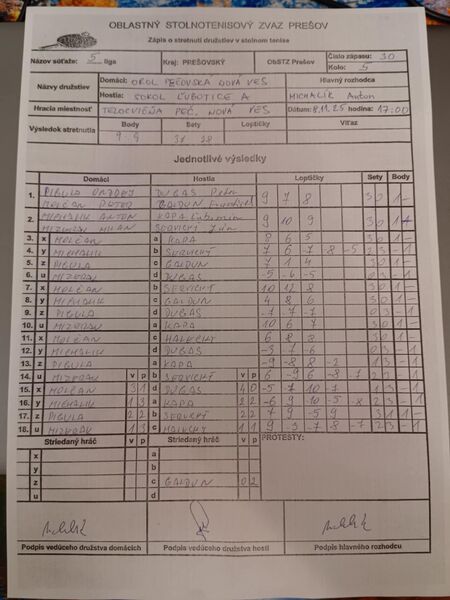 OBLASTNÝ STOLNOTENISOVÝ ZVAZ PREŠOV
Zápis o stretnutí družstiev v stolnom tenise
Názov súťaže: 5 liga Kraj: PREŠOVSKÝ ObSTZ Prešov Číslo zápasu: 30
Kolo: 5
Názov družstiev Domáci: OROL PEČOVSKÁ NOVÁ VES Hlavný rozhodca
Hostia: SOKOL ĽUBOTICE A MICHALIK Anton
Hracia miestnosť TELOCVIČŇA PEČ. NOVÁ VES Dátum: 8.11.25 hodina: 17:00
Výsledok stretnutia Body Sety Loptičky Víťaz
9-9
Jednotlivé výsledky
Domáci Hostia Loptičky Sety Body
1. PIBULA DUGAS Petr 9 7 8 3 0 1 -
HOLČAN PETER GAIDUN
2. MICHALIK ANTON KAPA 9 10 9 3 0 1
MILAN SERVICKÝ
3. x HOLČAN a KAPA 8 6 5 3 0 1 -
4. y MICHALIK b SERVICKÝ 7 6 -7 8 -5
5. z PIBULA c GAIDUN 7 1 4 3 0 1 -
6. u d DUGAS -5 -6 -5 0 3 - 1
7. x HOLČAN b SERVICKÝ 10 12 8 3 0 1 -
8. y MICHALIK c GAIDUN 4 8 6 3 0 1 -
9. z PIBULA d DUGAS -7 -7 0 3 - 1
10. u a KAPA 10 6 7 3 0 1 -
11. x HOLČAN c HALUCKY 6 8 8 3 0 1 -
12. y MICHALIK d DUGAS -3 -7 -6 0 3 - 1
13. z PIBULA a KAPA -9 -8 8 -2 1 3 - 1
14. u v p b SERVICKÝ v p 6 -9 6 -8 2 3 - 1
15. x HOLČAN 3 1 d DUGAS 4 0 -5 -7 10 -7 1 3 - 1
16. y MICHALIK 1 3 a KAPA 2 2 -6 9 10 -5 -8 2 3 - 1
17. z PIBULA 2 2 b SERVICKÝ 2 2 7 9 -5 9 3 1 1 -
18. u 1 3 c HALUCKY 1 1 9 -3 -7 8 -7 2 3 - 1
Striedaný hráč v p Striedaný hráč v p PROTESTY:
x a
y b
z c GAIDUN 0 2
u d
Podpis vedúceho družstva domácich Podpis vedúceho družstva hostí Podpis hlavného rozhodcu